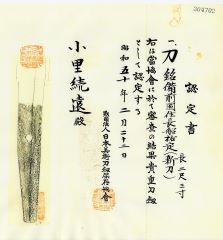 304702
認定書
一、刀 銘備前國住長船祐定(新刀)
長二尺三寸
右は當協會に於て審査の結果貴重刀劔
として認定する
昭和五十年二月二十三日
財団法人日本美術刀劔保存協會
小里続遠殿